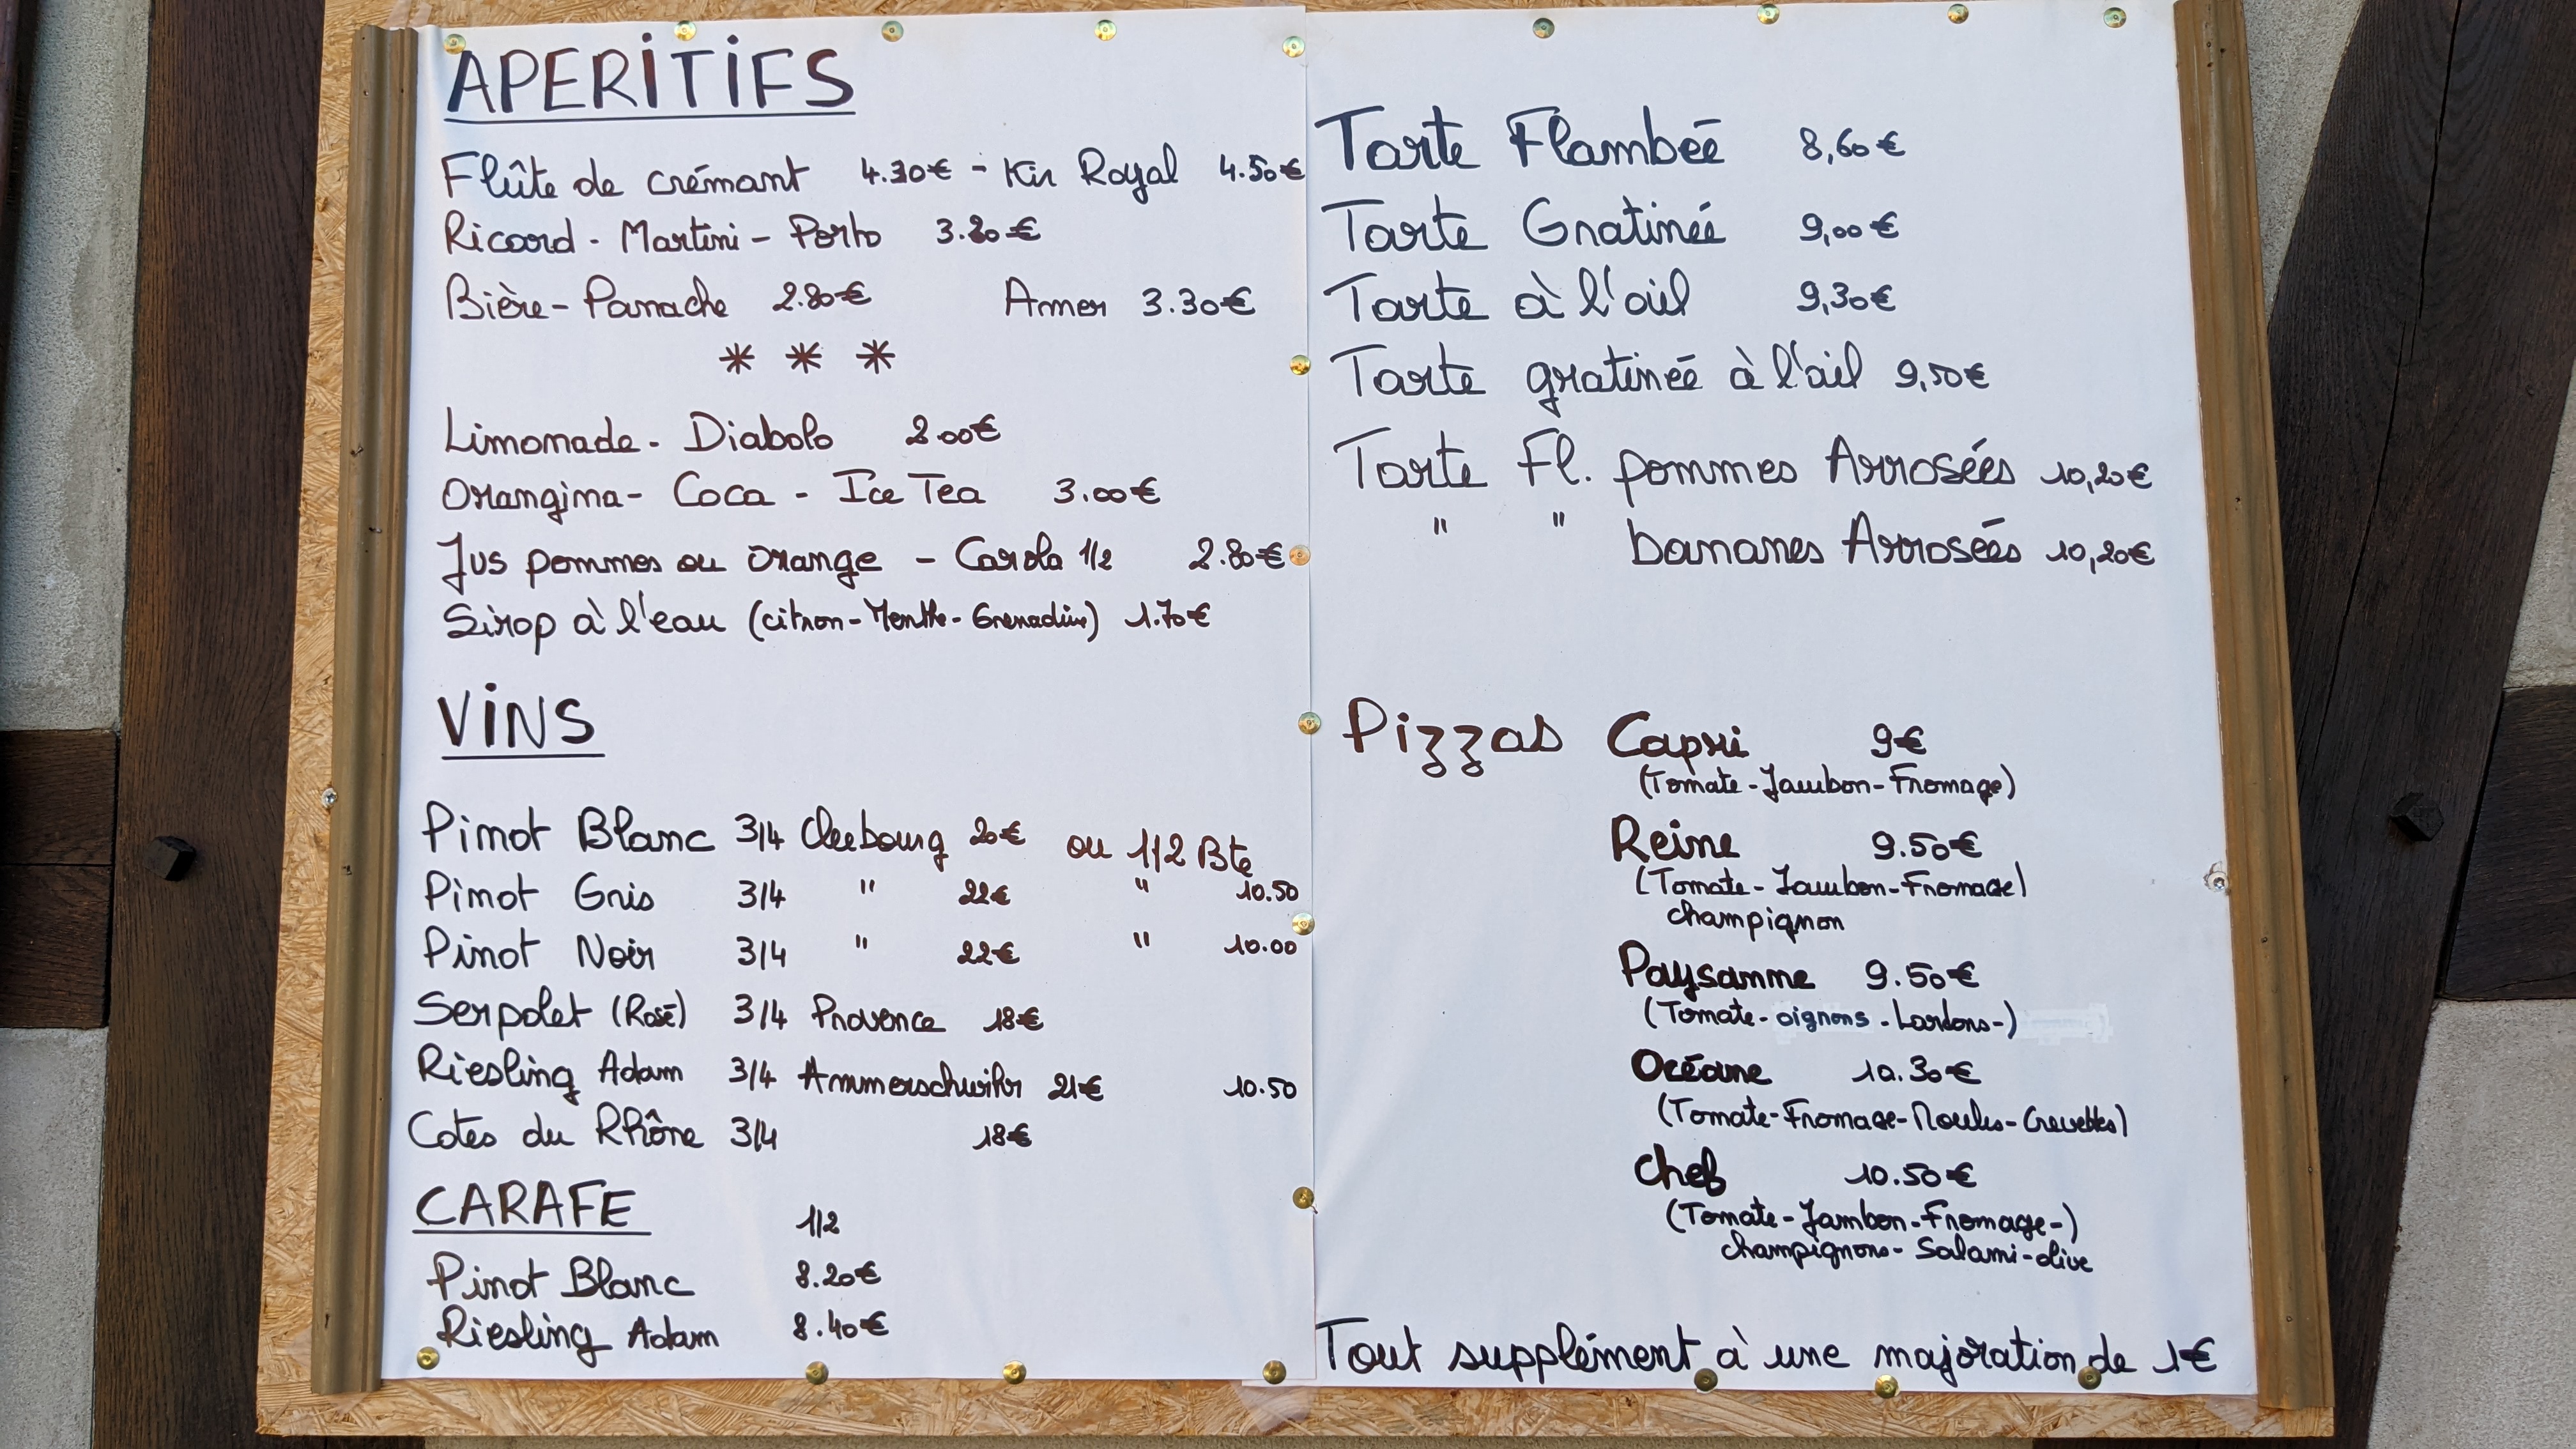 APERITIFS
Flûte de crémant 4.30€ - Kir Royal 4.50€
Ricard - Martini - Porto 3.20€
Bière - Panache 2.80€ Amer 3.30€
* * *
Limonade - Diabolo 2.00€
Orangina - Coca - Ice Tea 3.00€
Jus pommes ou orange - Carola 1/2 2.80€
Sirop à l'eau (citron - Menthe - Grenadine) 1.70€
VINS
Pinot Blanc 3/4 Cleebourg 20€ ou 1/2 Bte
Pinot Gris 3/4 " 22€ " 10.50
Pinot Noir 3/4 " 22€ " 10.00
Serpolet (Rosé) 3/4 Provence 18€
Riesling Adam 3/4 Ammerschwihr 21€ 10.50
Cotes du Rhône 3/4 18€
CARAFE
1/2
Pinot Blanc 8.20€
Riesling Adam 8.40€
Tarte Flambéé 8,60€
Tarte Gratinéé 9,00€
Tarte à l'ail 9,30€
Tarte gratinéé à l'ail 9,50€
Tarte Fl. pommes Arrosées 10,20€
" " bananes Arrosées 10,20€
Pizzas Capri 9€
(Tomate - Jambon - Fromage)
Reine 9.50€
(Tomate - Jambon - Fromage)
champignon
Paysanne 9.50€
(Tomate - oignons - Lardons -)
Océane 10.30€
(Tomate - Fromage - Moules - Crevettes)
Chef 10.50€
(Tomate - Jambon - Fromage -)
champignons - Salami - olive
Tout supplément à une majoration de 1€